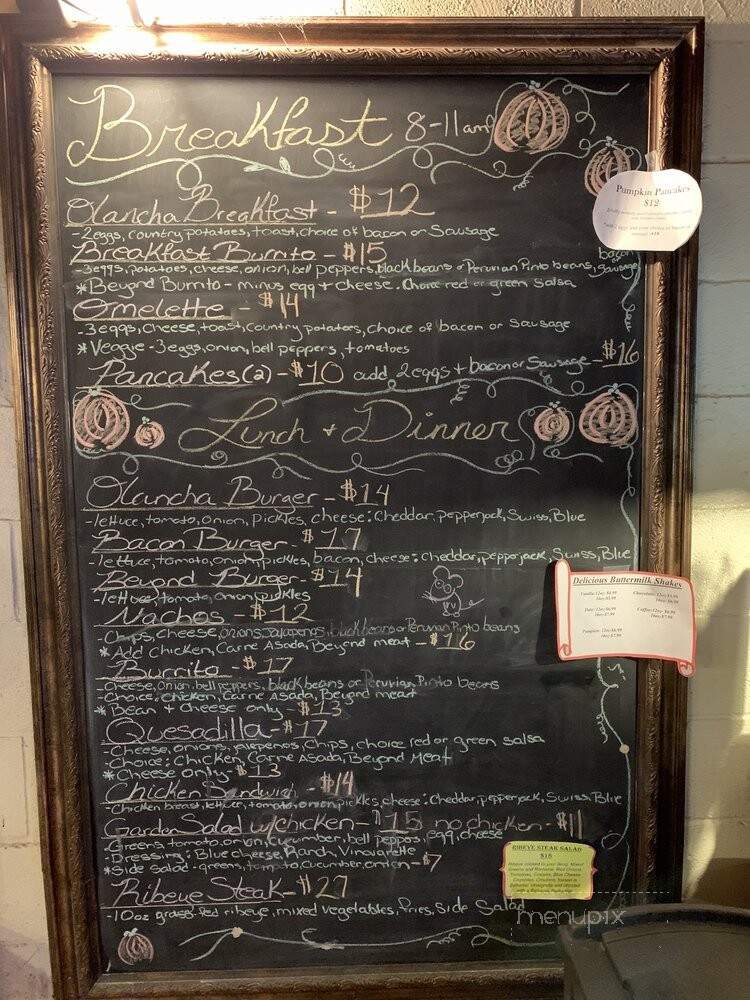 Breakfast 8-11am
Olancha Breakfast - $12
-2eggs, country potatoes, toast, choice of bacon or Sausage
Breakfast Burrito - $15
-3eggs, potatoes, cheese, onion, bell peppers, black beans or Peruvian Pinto beans, bacon, sausage
*Beyond Burrito - minus egg + cheese. Choice red or green salsa
Omelette - $14
-3eggs, Cheese, toast, country potatoes, choice of bacon or sausage
*Veggie - 3eggs, onion, bell peppers, tomatoes
Pancakes (2) - $10 add 2eggs + bacon or Sausage - $16
Pumpkin Pancakes
$12
Lunch + Dinner
Olancha Burger - $14
-lettuce, tomato, onion, pickles, cheese: Cheddar, pepperjack, Swiss, Blue
Bacon Burger - $17
-lettuce, tomato, onion, pickles, bacon, cheese: Cheddar, pepperjack, Swiss, Blue
Beyond Burger - $14
-lettuce, tomato, onion, pickles
Nachos - $12
-Chips, cheese, onions, jalapenos, black beans or Peruvian Pinto beans
*Add Chicken, Carne Asada, Beyond meat - $16
Delicious Buttermilk Shakes
Burrito - $17
-Cheese, onion, bell peppers, black beans or Peruvian Pinto beans
-Choice: Chicken, Carne Asada, Beyond meat
*Bean + Cheese only - $13
Quesadilla - $17
-Cheese, onions, jalepenos, Chips, choice red or green salsa
-Choice: Chicken, Carne Asada, Beyond Meat
*Cheese only $13
Chicken Sandwich - $14
-Chicken breast, lettuce, tomato, onion, pickles, cheese: Cheddar, pepperjack, Swiss, Blue
Garden Salad w/chicken - $15 no chicken - $11
-Greens, tomato, onion, cucumber, bell peppos, egg, cheese
-Dressing: Blue cheese, Ranch, Vinaigrette
*Side salad - greens, tomato, cucumber, onion - $7
RIBEYE STEAK SALAD
Ribeye Steak - $27
-10oz grass-fed ribeye, mixed vegetables, fries, Side Salad
menupix